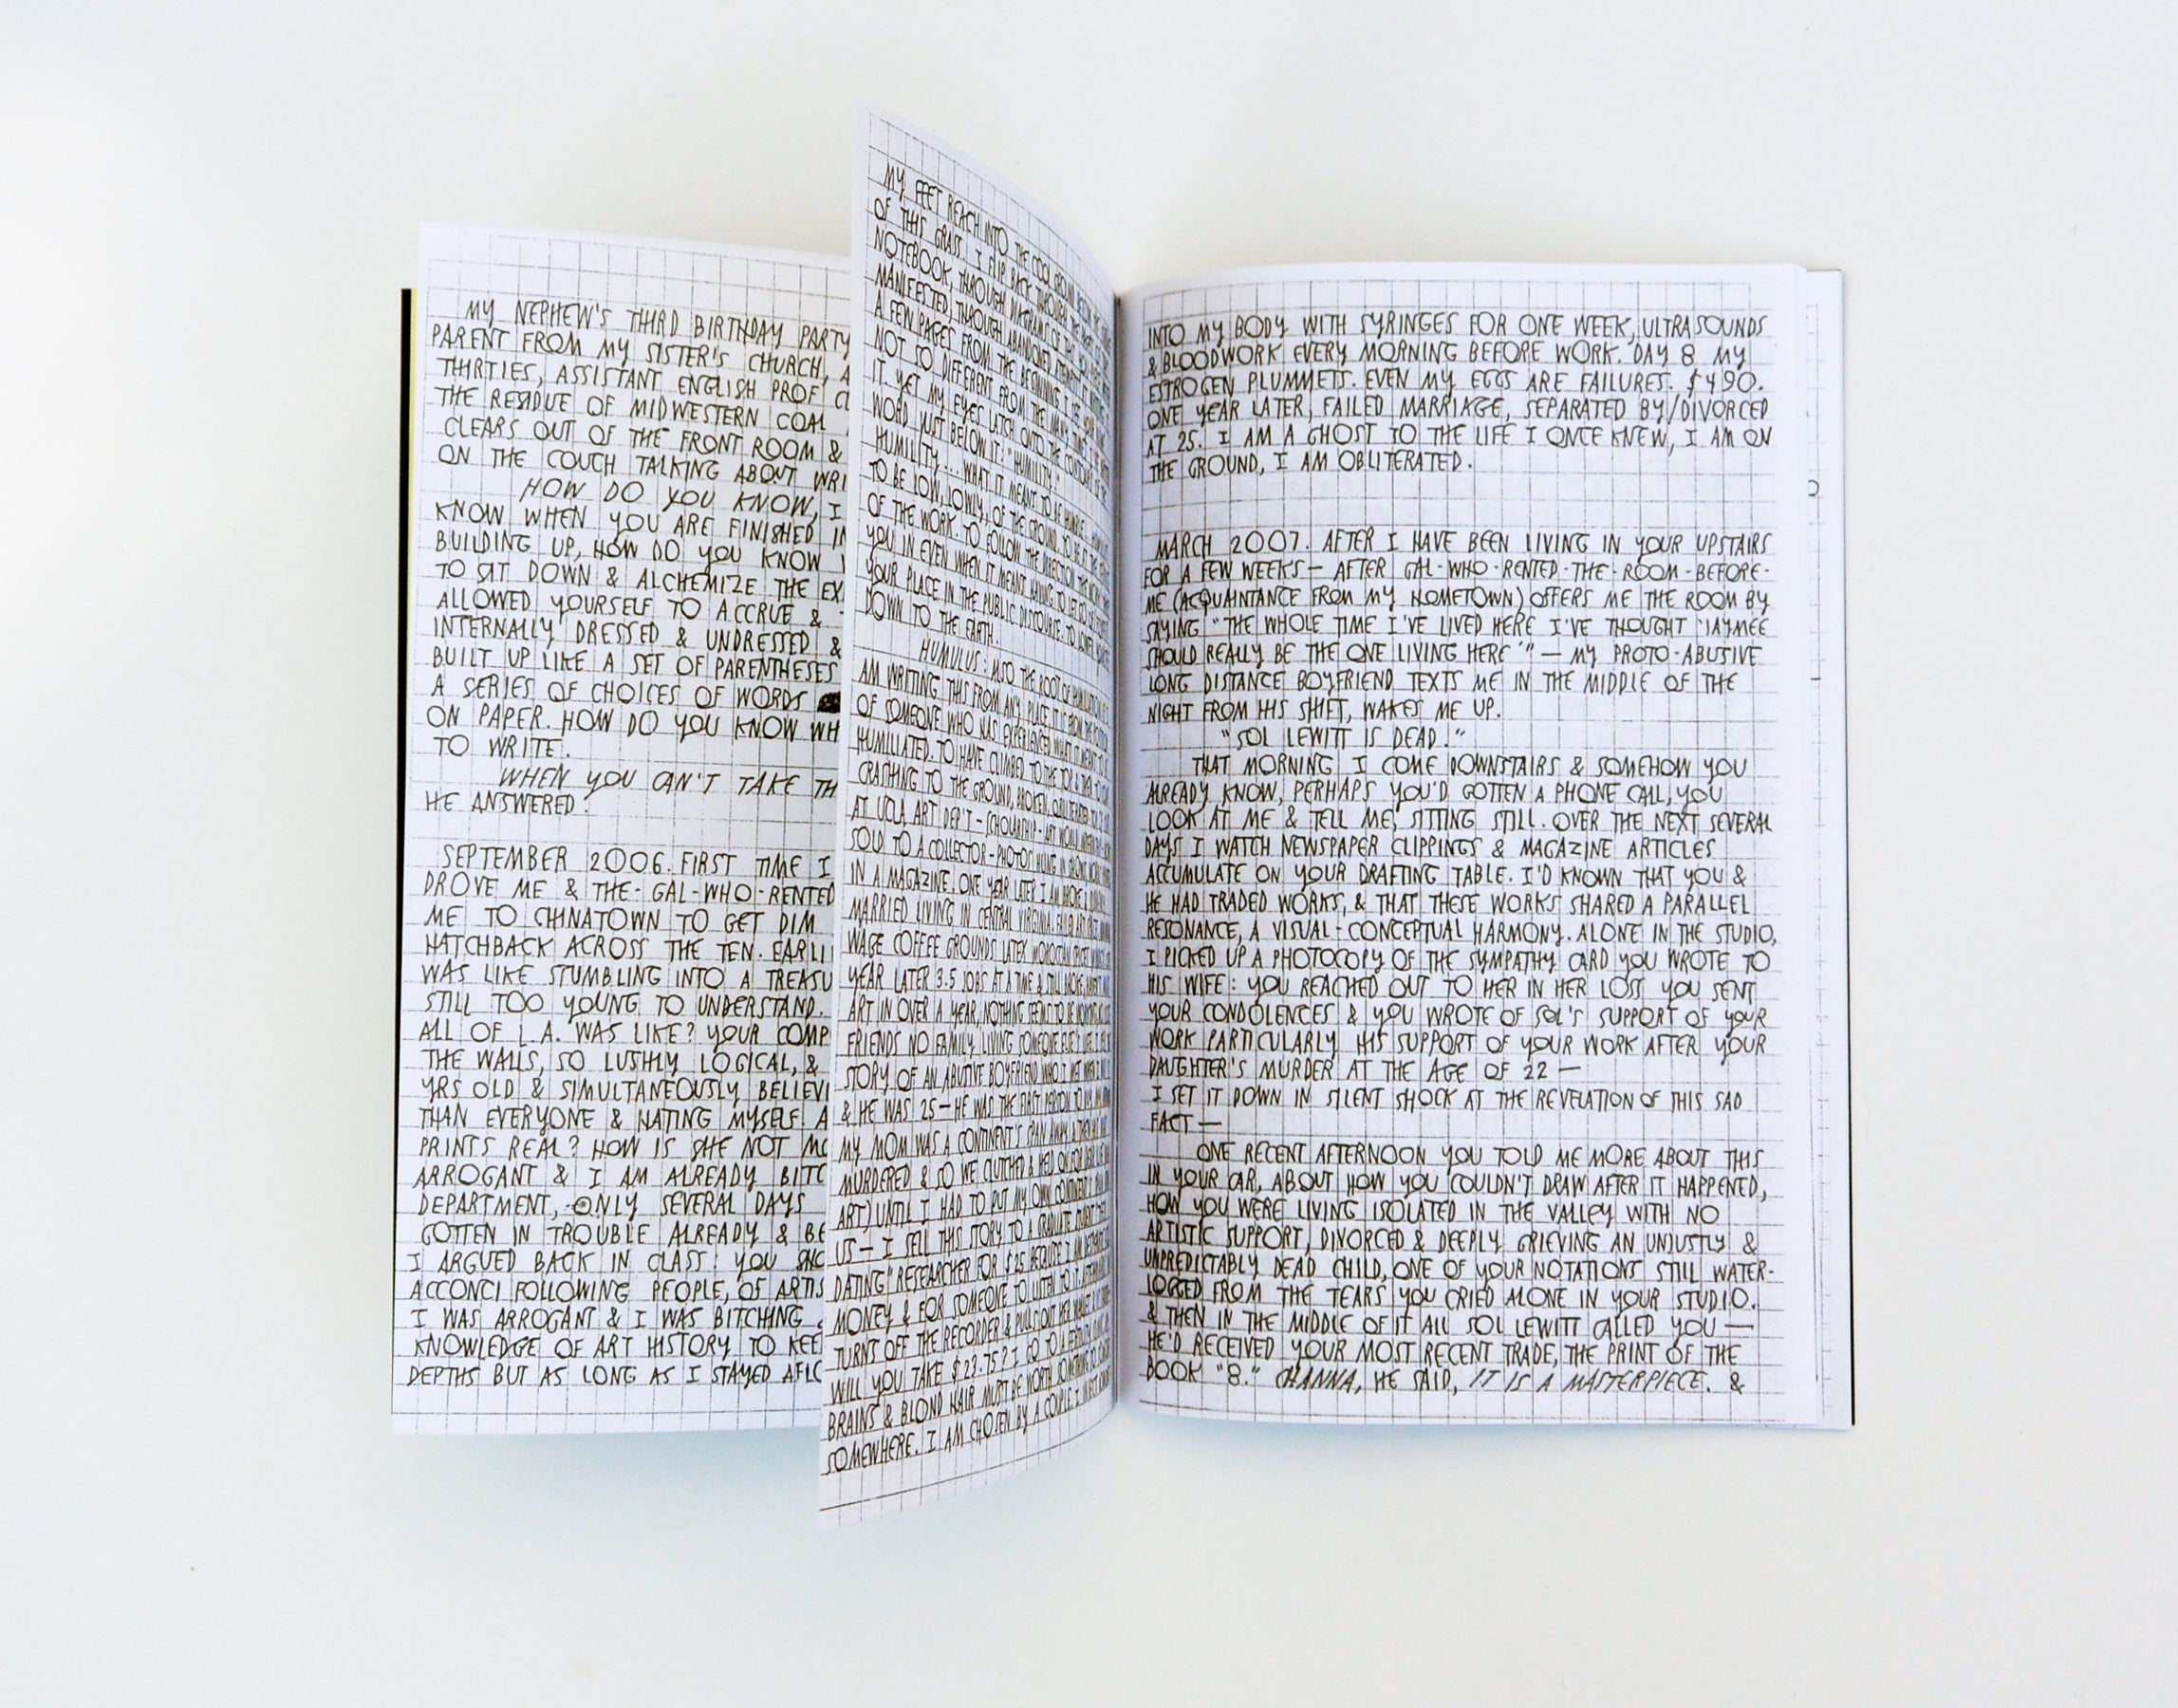 MY NEPHEW'S THIRD BIRTHDAY PARTY
PARENT FROM MY SISTER'S CHURCH, A
THIRTIES, ASSISTANT ENGLISH PROF
THE RESIDUE OF MIDWESTERN COAL
CLEARS OUT OF THE FRONT ROOM &
ON THE COUCH TALKING ABOUT WRI
HOW DO YOU KNOW, I
KNOW WHEN YOU ARE FINISHED IN
BUILDING UP, HOW DO YOU KNOW
TO SIT DOWN & ALCHEMIZE THE EX
ALLOWED YOURSELF TO ACCRUE &
INTERNALLY DRESSED & UNDRESSED &
BUILT UP LIKE A SET OF PARENTHESES
A SERIES OF CHOICES OF WORDS
ON PAPER. HOW DO YOU KNOW WH
TO WRITE.
WHEN YOU CAN'T TAKE TH
HE ANSWERED.
SEPTEMBER 2006. FIRST TIME I
DROVE ME & THE-GAL-WHO-RENTED
ME TO CHINATOWN TO GET DIM
HATCHBACK ACROSS THE TEN. EARLI
WAS LIKE STUMBLING INTO A TREASU
STILL TOO YOUNG TO UNDERSTAND.
ALL OF L.A. WAS LIKE? YOUR COMP
THE WALLS, SO LUSHLY LOGICAL, &
YRS OLD & SIMULTANEOUSLY BELIEVI
THAN EVERYONE & HATING MYSELF A
PRINTS REAL? HOW IS SHE NOT MO
ARROGANT & I AM ALREADY BITC
DEPARTMENT, ONLY SEVERAL DAYS
GOTTEN IN TROUBLE ALREADY & BE
I ARGUED BACK IN CLASS: YOU SHO
ACCONCI FOLLOWING PEOPLE, OF ARTIS
I WAS ARROGANT & I WAS BITCHING
KNOWLEDGE OF ART HISTORY TO KEE
DEPTHS BUT AS LONG AS I STAYED AFLO
MY FEET REACH INTO THE COOL GROUND
OF THIS GRASS. I FLIP BACK THROUGH THE
NOTEBOOK, THROUGH DIAGRAMS OF
MANIFESTED, THROUGH ABANDONED
A FEW PAGES FROM THE BEGINNING I
NOT SO DIFFERENT FROM THE MANY
IT. YET MY EYES LATCH ONTO THE CONTOURS OF THE
WORD JUST BELOW IT: "HUMILITY."
HUMILITY... WHAT IT MEANT TO BE HUMBLE
TO BE LOW, LOWLY, OF THE GROUND. TO BE
OF THE WORK. TO FOLLOW THE DIRECTION THE WORK
YOU IN EVEN WHEN IT MEANT HAVING TO LET GO OF
YOUR PLACE IN THE PUBLIC DISCOURSE. TO LOWER
DOWN TO THE EARTH.
HUMULUS: ALSO THE ROOT OF HUMILIATION
AM WRITING THIS FROM ANY PLACE IT IS FROM THE
OF SOMEONE WHO HAS EXPERIENCED WHAT IT MEANT TO
HUMILIATED. TO HAVE CLIMBED TO THE TOP & THEN
CRASHING TO THE GROUND, BROKEN, OBLITERATED.
AT UCLA ART DEP'T – SCHOLARSHIP – ART WORLD
SOLD TO A COLLECTOR – PHOTOS HUNG IN
IN A MAGAZINE. ONE YEAR LATER I AM BROKE &
MARRIED LIVING IN CENTRAL VIRGINIA. FAILED ARTIST
WAGE COFFEE GROUNDS LATEX MOROCCAN SPICE
YEAR LATER 3.5 JOBS AT A TIME & STILL BROKE, HAVEN'T
ART IN OVER A YEAR, NOTHING SEEMS TO BE
FRIENDS NO FAMILY, LIVING SOMEONE ELSE'S LIFE.
STORY OF AN ABUSIVE BOYFRIEND WHO I MET WHEN I
& HE WAS 25 — HE WAS THE FIRST PERSON TO
MY MOM WAS A CONTINENT'S SPAN AWAY &
MURDERED & SO WE CLUTCHED & HELD ON
ART) UNTIL I HAD TO PUT MY OWN CONTINENT'S SPAN
US — I SELL THIS STORY TO A GRADUATE
DATING" RESEARCHER FOR $25 BECAUSE I AM
MONEY & FOR SOMEONE TO LISTEN TO IT
TURNS OFF THE RECORDER & PULLS OUT HER WALLET
WILL YOU TAKE $23.75? I GO TO A
BRAINS & BLOND HAIR MUST BE WORTH SOMETHING TO
SOMEWHERE. I AM CHOSEN BY A COUPLE I
INTO MY BODY WITH SYRINGES FOR ONE WEEK, ULTRASOUNDS
& BLOODWORK EVERY MORNING BEFORE WORK. DAY 8 MY
ESTROGEN PLUMMETS. EVEN MY EGGS ARE FAILURES. $490.
ONE YEAR LATER, FAILED MARRIAGE, SEPARATED BY/DIVORCED
AT 25. I AM A GHOST TO THE LIFE I ONCE KNEW, I AM ON
THE GROUND, I AM OBLITERATED.
MARCH 2007. AFTER I HAVE BEEN LIVING IN YOUR UPSTAIRS
FOR A FEW WEEKS — AFTER GAL-WHO-RENTED-THE-ROOM-BEFORE-
ME (ACQUAINTANCE FROM MY HOMETOWN) OFFERS ME THE ROOM BY
SAYING "THE WHOLE TIME I'VE LIVED HERE I'VE THOUGHT 'JAYMEE
SHOULD REALLY BE THE ONE LIVING HERE'" — MY PROTO-ABUSIVE
LONG DISTANCE BOYFRIEND TEXTS ME IN THE MIDDLE OF THE
NIGHT FROM HIS SHIFT, WAKES ME UP.
"SOL LEWITT IS DEAD."
THAT MORNING I COME DOWNSTAIRS & SOMEHOW YOU
ALREADY KNOW, PERHAPS YOU'D GOTTEN A PHONE CALL, YOU
LOOK AT ME & TELL ME, SITTING STILL. OVER THE NEXT SEVERAL
DAYS I WATCH NEWSPAPER CLIPPINGS & MAGAZINE ARTICLES
ACCUMULATE ON YOUR DRAFTING TABLE. I'D KNOWN THAT YOU &
HE HAD TRADED WORKS, & THAT THESE WORKS SHARED A PARALLEL
RESONANCE, A VISUAL-CONCEPTUAL HARMONY. ALONE IN THE STUDIO,
I PICKED UP A PHOTOCOPY OF THE SYMPATHY CARD YOU WROTE TO
HIS WIFE: YOU REACHED OUT TO HER IN HER LOSS YOU SENT
YOUR CONDOLENCES & YOU WROTE OF SOL'S SUPPORT OF YOUR
WORK PARTICULARLY HIS SUPPORT OF YOUR WORK AFTER YOUR
DAUGHTER'S MURDER AT THE AGE OF 22 —
I SET IT DOWN IN SILENT SHOCK AT THE REVELATION OF THIS SAD
FACT —
ONE RECENT AFTERNOON YOU TOLD ME MORE ABOUT THIS
IN YOUR CAR, ABOUT HOW YOU COULDN'T DRAW AFTER IT HAPPENED,
HOW YOU WERE LIVING ISOLATED IN THE VALLEY WITH NO
ARTISTIC SUPPORT, DIVORCED & DEEPLY GRIEVING AN UNJUSTLY &
UNPREDICTABLY DEAD CHILD, ONE OF YOUR NOTATIONS STILL WATER-
LOGGED FROM THE TEARS YOU CRIED ALONE IN YOUR STUDIO.
& THEN IN THE MIDDLE OF IT ALL SOL LEWITT CALLED YOU —
HE'D RECEIVED YOUR MOST RECENT TRADE, THE PRINT OF THE
BOOK "8." CHANNA, HE SAID, IT IS A MASTERPIECE. &